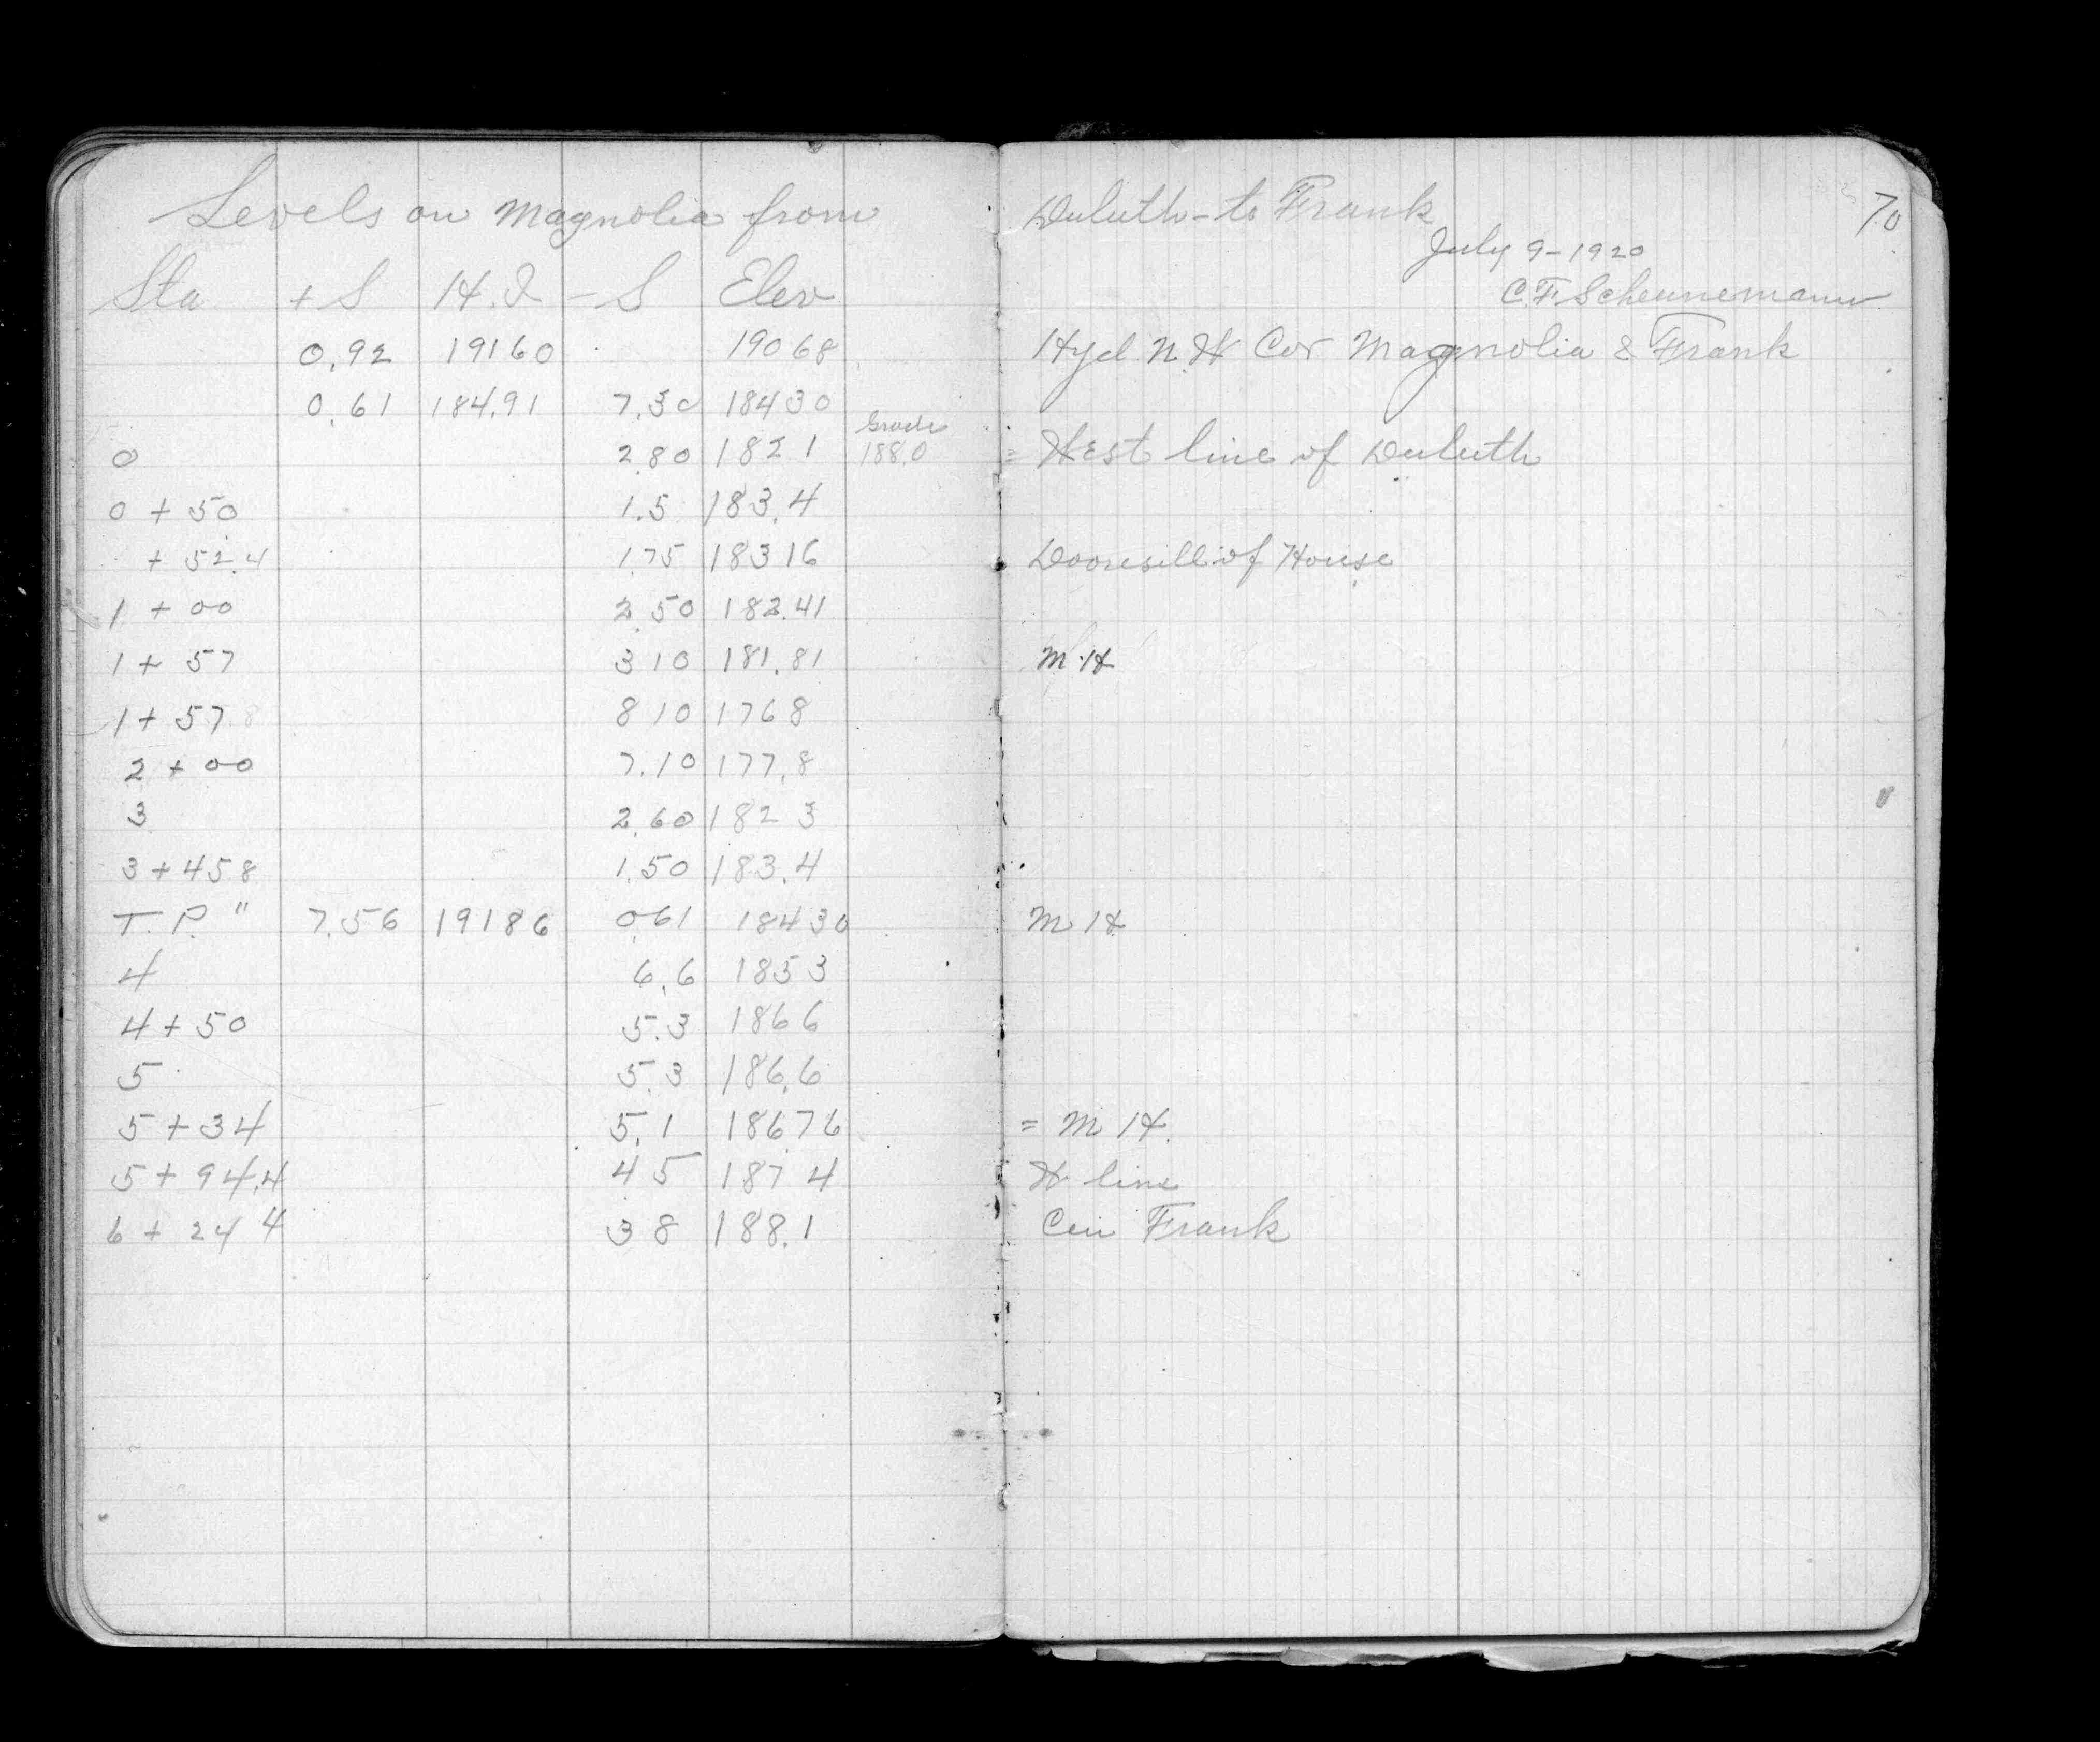 Levels on Magnolia from Duluth - to Frank 70
July 9-1920
C.F. Scheunemann
Sta. + S H.I - S Elev
0.92 19160 19068 Hyd N.W Cor Magnolia & Frank
0.61 184.91 7.30 18430
Grade
0 2.80 182 1 188.0 = West line of Duluth
0 + 50 1.5 183.4
+ 52.4 1.75 18316 Dooresill of House
1 + 00 2.50 182.41
1 + 57 3 10 181.81 M.H
1 + 57.8 8 10 176 8
2 + 00 7.10 177.8
3 2.60 182 3
3 + 45 8 1.50 183.4
T.P. " 7.56 19186 0.61 18430 M H
4 6.6 185 3
4 + 50 5.3 186 6
5 5.3 186.6
5 + 34 5.1 186 76 = M H.
5 + 94.4 4 5 187 4 W line
6 + 24 4 3 8 188.1 Cen Frank